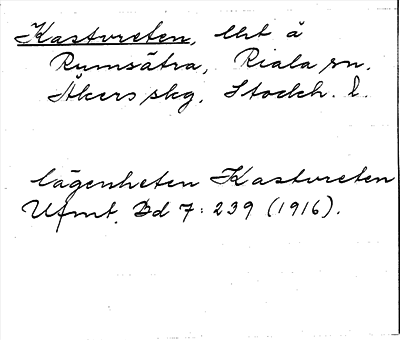 Kastvreten, lht å
Rumsätra, Riala sn.
Åkers skg. Stockh. l.
lägenheten Kastvreten
Ufmt. Bd 7: 239 (1916).